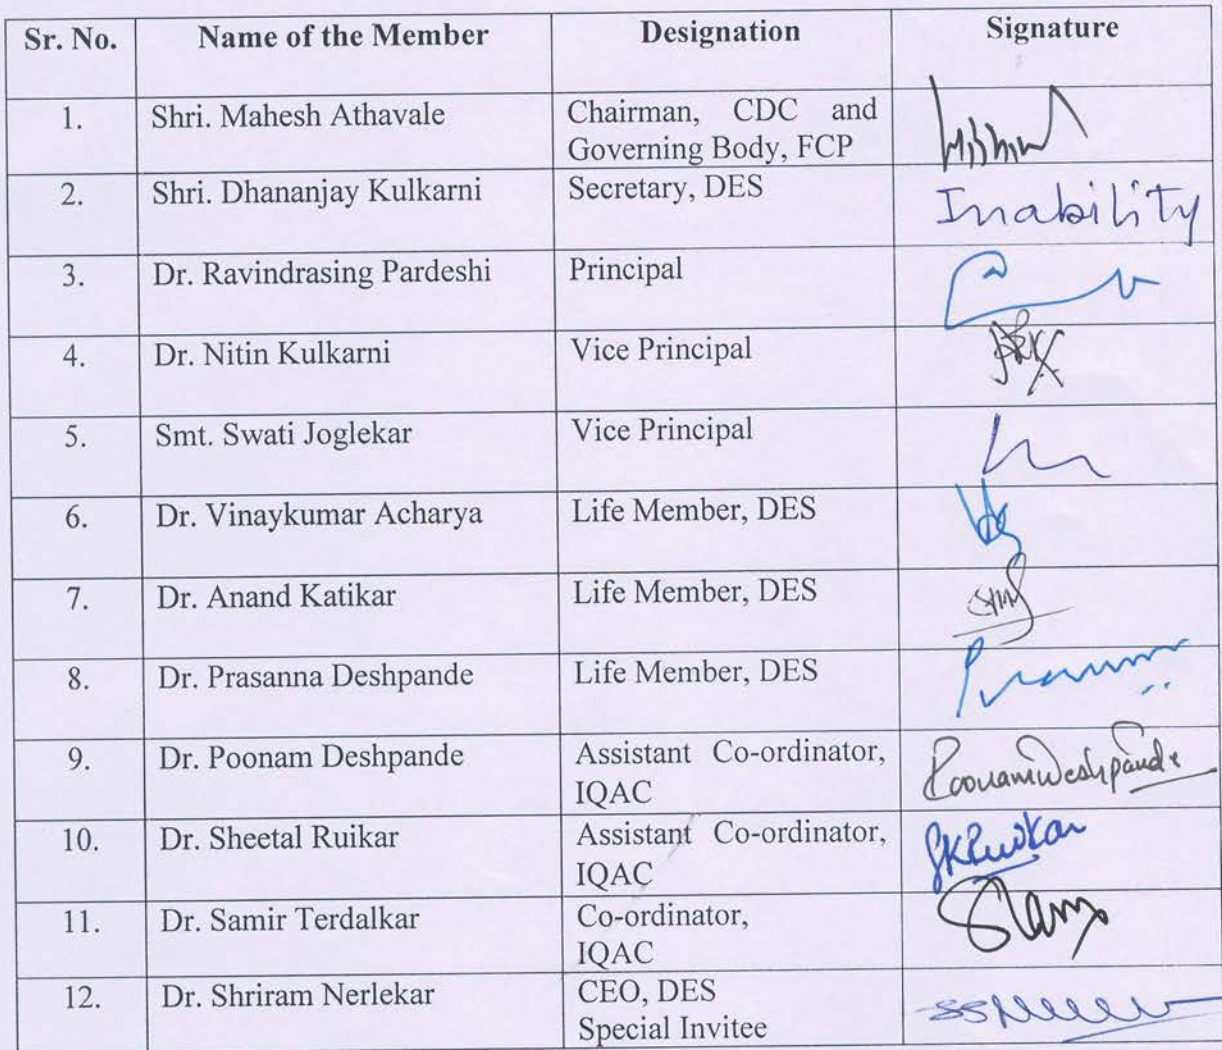 Sr. No. Name of the Member Designation Signature
1. Shri. Mahesh Athavale Chairman, CDC and
Governing Body, FCP
2. Shri. Dhananjay Kulkarni Secretary, DES Inability
3. Dr. Ravindrasing Pardeshi Principal
4. Dr. Nitin Kulkarni Vice Principal
5. Smt. Swati Joglekar Vice Principal
6. Dr. Vinaykumar Acharya Life Member, DES
7. Dr. Anand Katikar Life Member, DES
8. Dr. Prasanna Deshpande Life Member, DES
9. Dr. Poonam Deshpande Assistant Co-ordinator, PoonamDeshpande
IQAC
10. Dr. Sheetal Ruikar Assistant Co-ordinator, SKRuikar
IQAC
11. Dr. Samir Terdalkar Co-ordinator,
IQAC
12. Dr. Shriram Nerlekar CEO, DES
Special Invitee